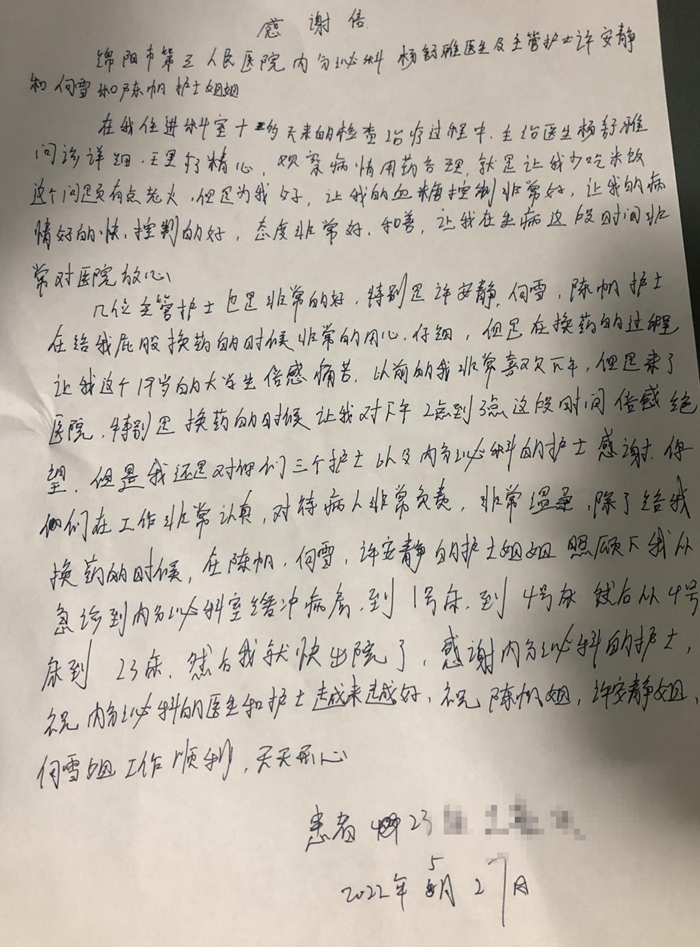 感谢信
绵阳市第三人民医院内分泌科 杨舒雅医生及主管护士许安静
和何雪和陈帆护士姐姐
在我住进科室十多天来的检查治疗过程中，主治医生杨舒雅
问诊详细，精心，观察病情用药合理，就是让我少吃米饭
这个问题有点老火，但是为我好，让我的血糖控制非常好，让我的病
情好的快，控制的好，态度非常好，和善，让我在生病这段时间非
常对医院放心
几位主管护士也是非常的好，特别是许安静，何雪，陈帆护士
在给我屁股换药的时候非常的用心，仔细，但是在换药的过程
让我这个19岁的大学生倍感痛苦，以前的我非常喜欢下午，但是来了
医院，特别是换药的时候让我对下午2点到3点这段时间倍感绝
望，但是我还是对她们三个护士以及内分泌科的护士感谢，
她们在工作非常认真，对待病人非常负责，非常温柔，除了给我
换药的时候，在陈帆，何雪，许安静的护士姐姐照顾下我从
急诊到内分泌科室缓冲病房，到1号床，到4号床 然后从4号
床到23床，然后我就快出院了，感谢内分泌科的护士，
祝内分泌科的医生和护士越来越好，祝陈帆姐，许安静姐，
何雪姐工作顺利，天天开心
患者 23
2022年5月27日